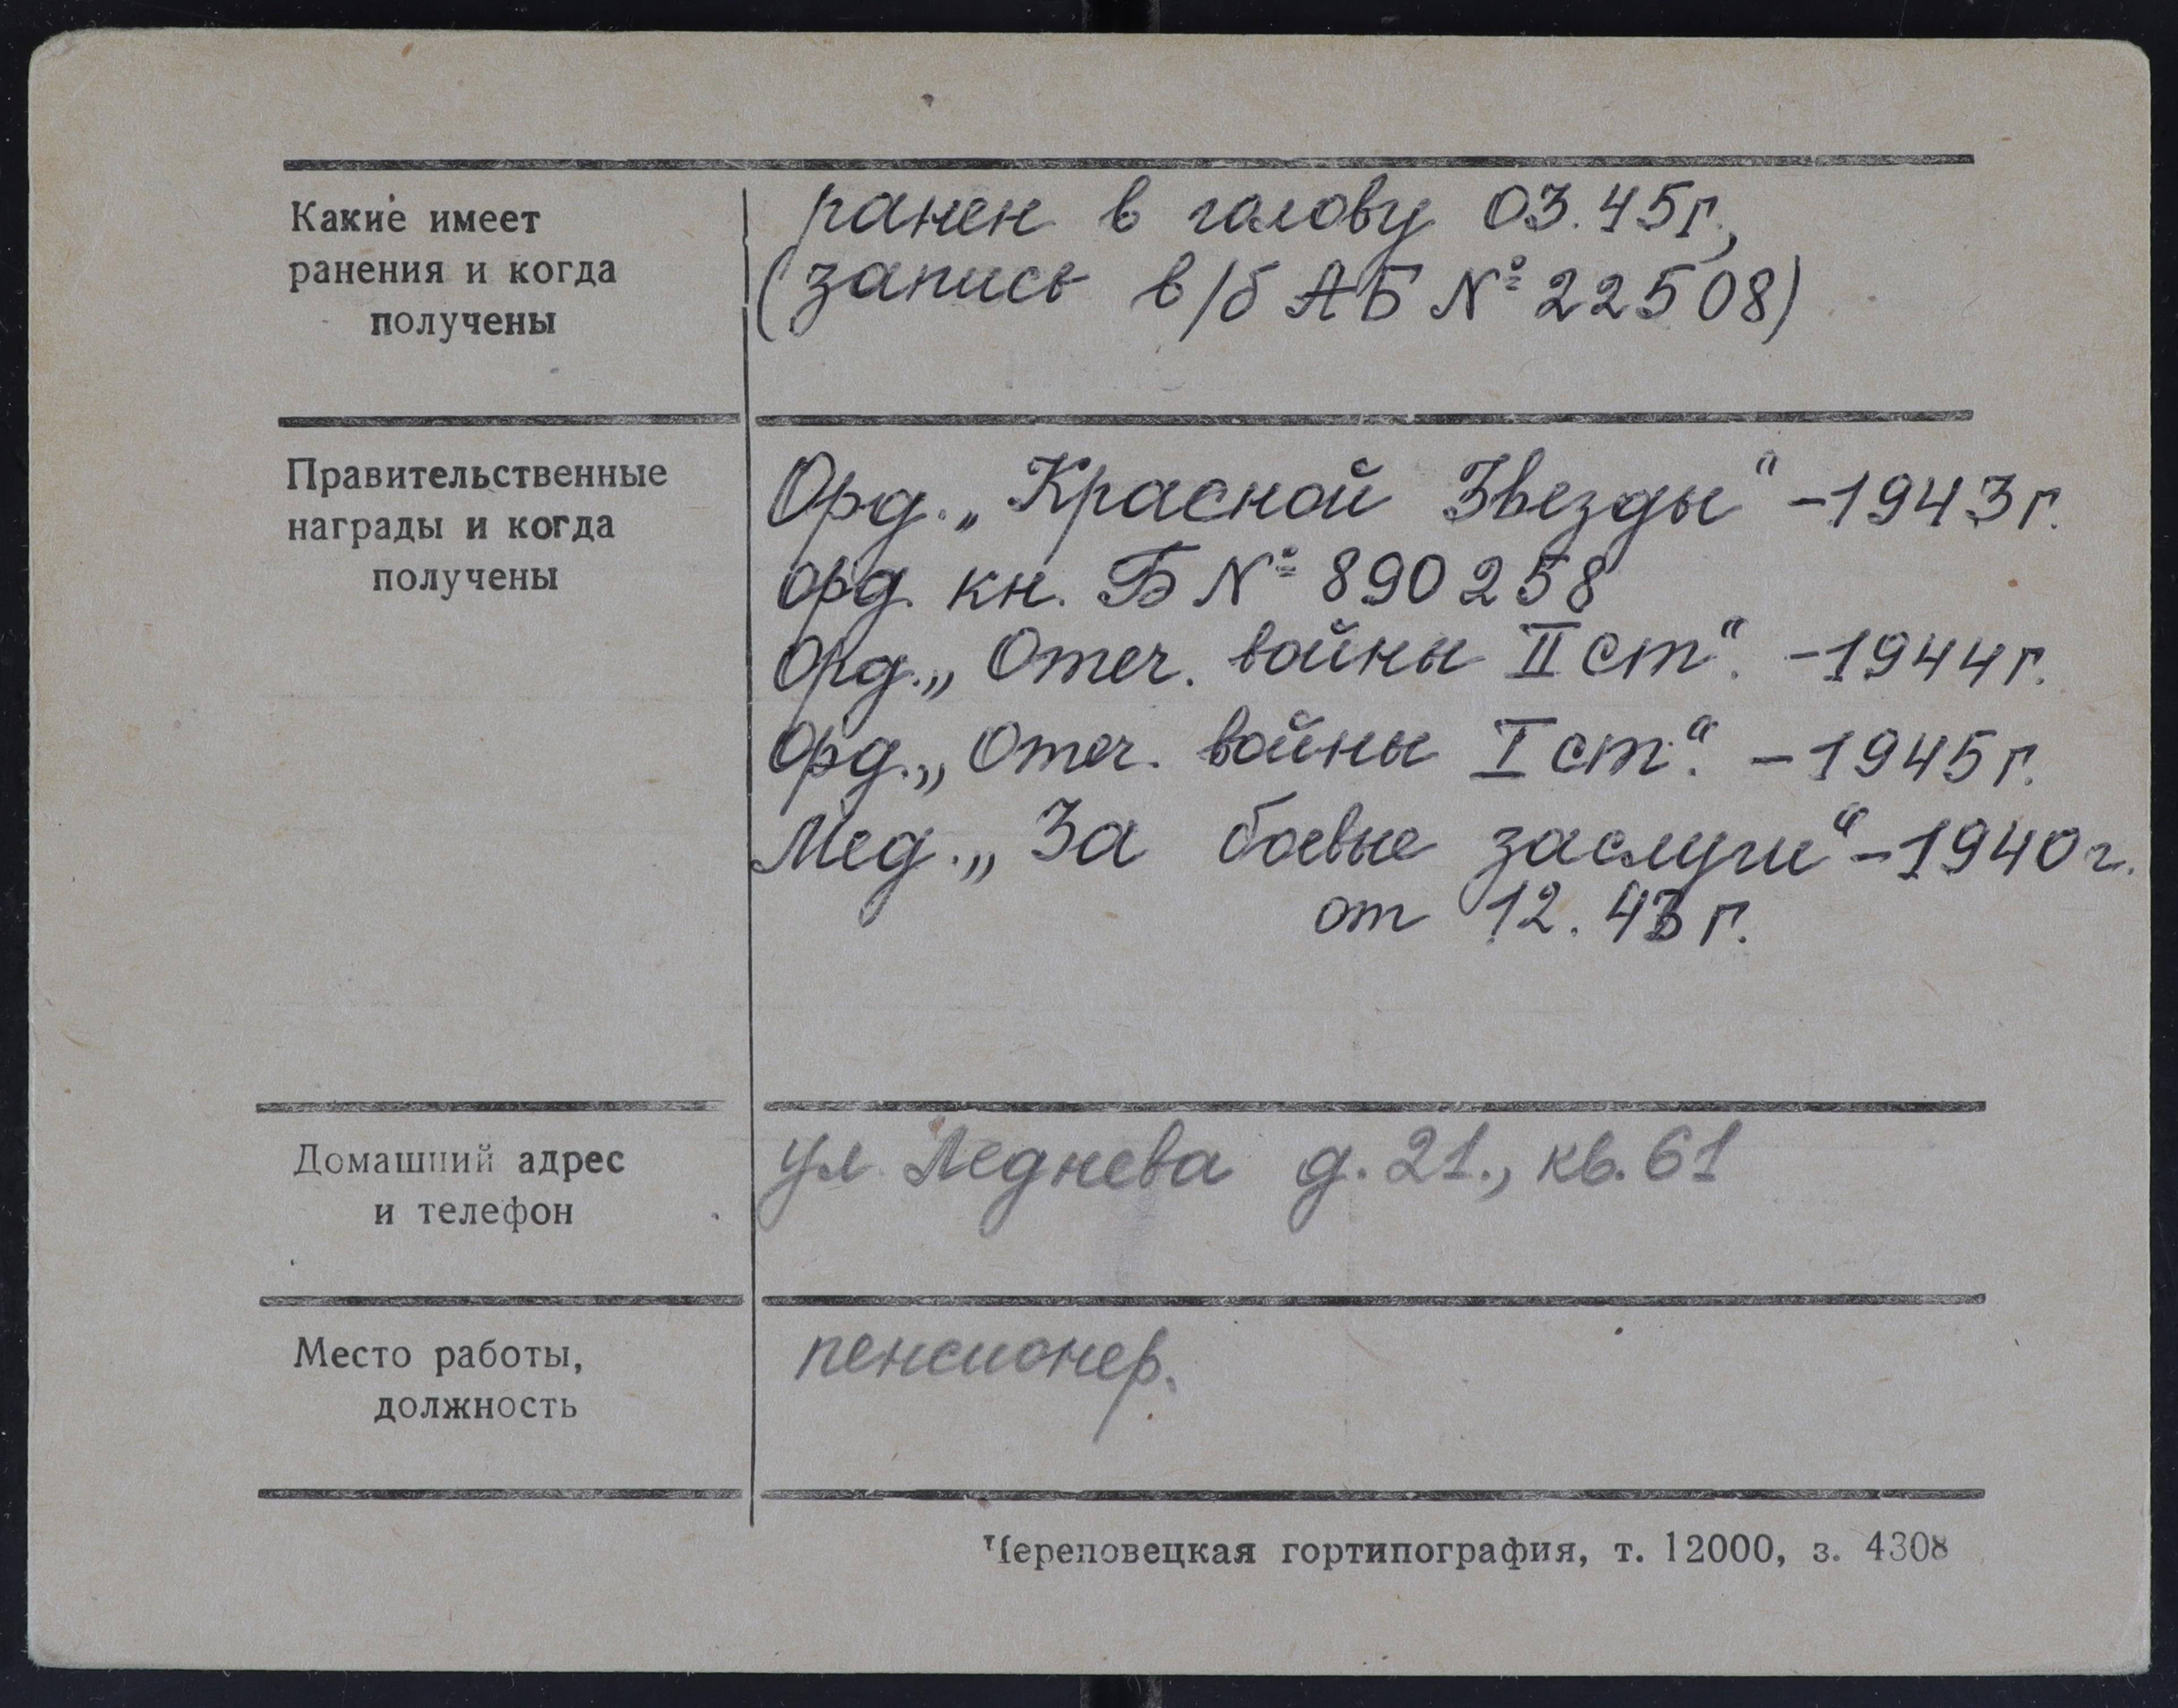 Какие имеет
ранения и когда
получены
ранен в голову 03.45г.,
(запись в/б АБ № 22508)
Правительственные
награды и когда
получены
Орд. „Красной Звезды“ - 1943г.
орд. кн. Б № 890258
Орд. „Отеч. войны II ст“. - 1944г.
Орд. „Отеч. войны I ст“. - 1945г.
Мед. „За боевые заслуги“ - 1940г.
от 12.43г.
Домашний адрес
и телефон
ул. Леднева д. 21., кв. 61
Место работы,
должность
пенсионер.
Череповецкая гортипография, т. 12000, з. 4308